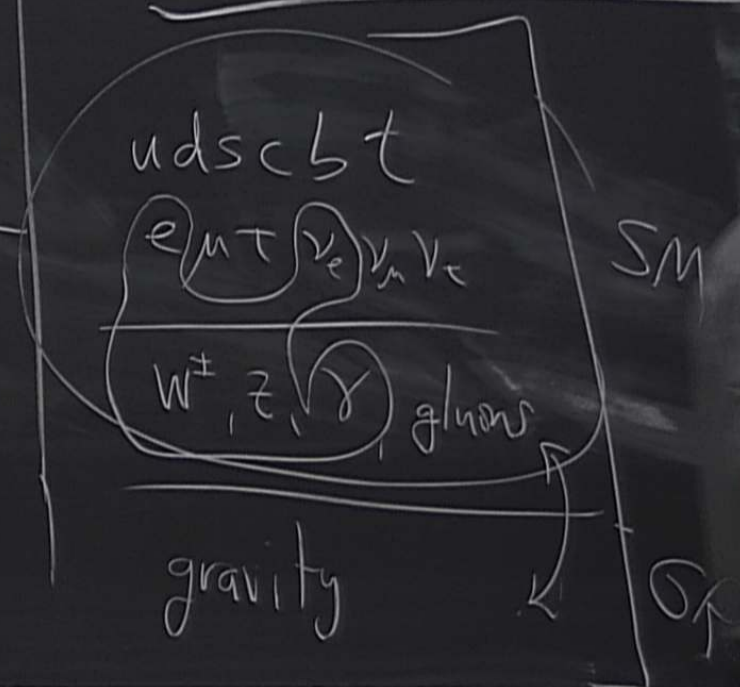 udscbt
e μ τ νe νμ ντ
SM
W±, Z, γ, gluons
gravity